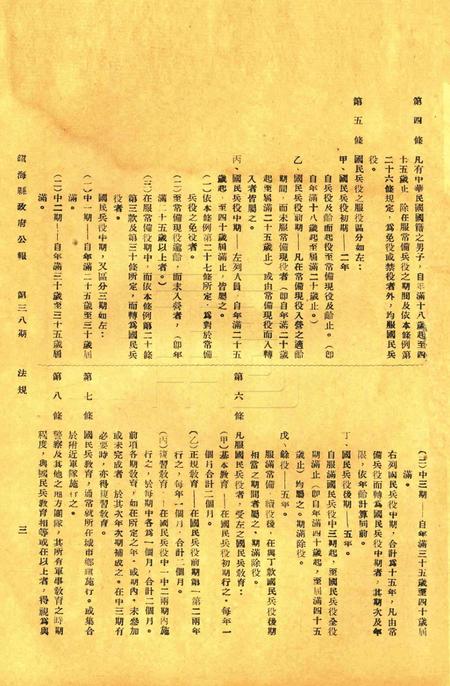 第四條　凡有中華民國國籍之男子，自年滿十八歲起至四
十五歲止　除在服常備兵役之期間及依本條例第
二十六條規定，爲免役或禁役者外，均服國民兵
役。
第五條　國民兵役之服役區分如左：
甲、國民兵役初期——二年
自兵役及齡而起役至常備現役及齡止。（卽
自年滿十八歲起至屆滿二十歲止。）
乙、國民兵役前期——凡在常備現役入營之適齡
期間，而未服常備現役者（卽自年滿二十歲
起至屆滿二十五歲止）或由常備現役而入轉
入者皆屬之。
丙、國民兵役中期　左列人員，自年滿二十五
歲起，至四十歲屆滿止，皆屬之。
（一）依本條例第二十七條所定，爲對於常備
兵役之免役者。
（二）至常備現役逾齡，而未入營者，（卽年
滿二十五歲以上者。）
（三）在服常備役期中，而依本條例第二十條
第三款及第三十條所定，而轉爲國民兵
役者。
國民兵役中期，又區分三期如左：
（一）中一期——自年滿二十五歲至三十歲屆
滿。
（二）中二期——自年滿三十歲至三十五歲屆
滿。
（三）中三期——自年滿三十五歲至四十歲屆
滿。
右列國民兵役中期，合計爲十五年，凡由常
備兵役而轉爲國民兵役中期者，其期次及年
限，依年齡計算屆前。
丁、國民兵役後期——五年。
自服滿國民兵役中三期起，至屆國民兵役全役
期滿止（卽自年滿四十歲起，至屆滿四十五
歲止）均屬之。期滿除役。
服滿常備　續役後，在與丁款國民兵役後期
相當之期間者屬之，期滿除役。
戊、餘役——五年。
第六條　凡服國民兵役者，受左之國民兵教育：
（甲）基本教育——在國民兵役初期行之。每年一
個月合計二個月。
（乙）正規教育——在國民兵役前期第一第二兩年
行之，每年一個月，合計二個月。
（丙）複習教育——在國民兵役中一中二兩期內施
行之，於每期中各爲一個月，合計二個月。
前項各期教育，如在所定之年，或期內，未參加
或未完成者　於其次年次期補成之。在中三期有
必要時，亦得複習教育。
第七條　國民兵教育，通常就所在城市鄉鎮施行。或集合
於附近軍隊施行之。
第八條　警察及其他之地方團隊，其所有軍事教育之時期
程度，與國民兵教育相等或在以上者，得視爲與
鎮海縣政府公報　第三八期　法規　三